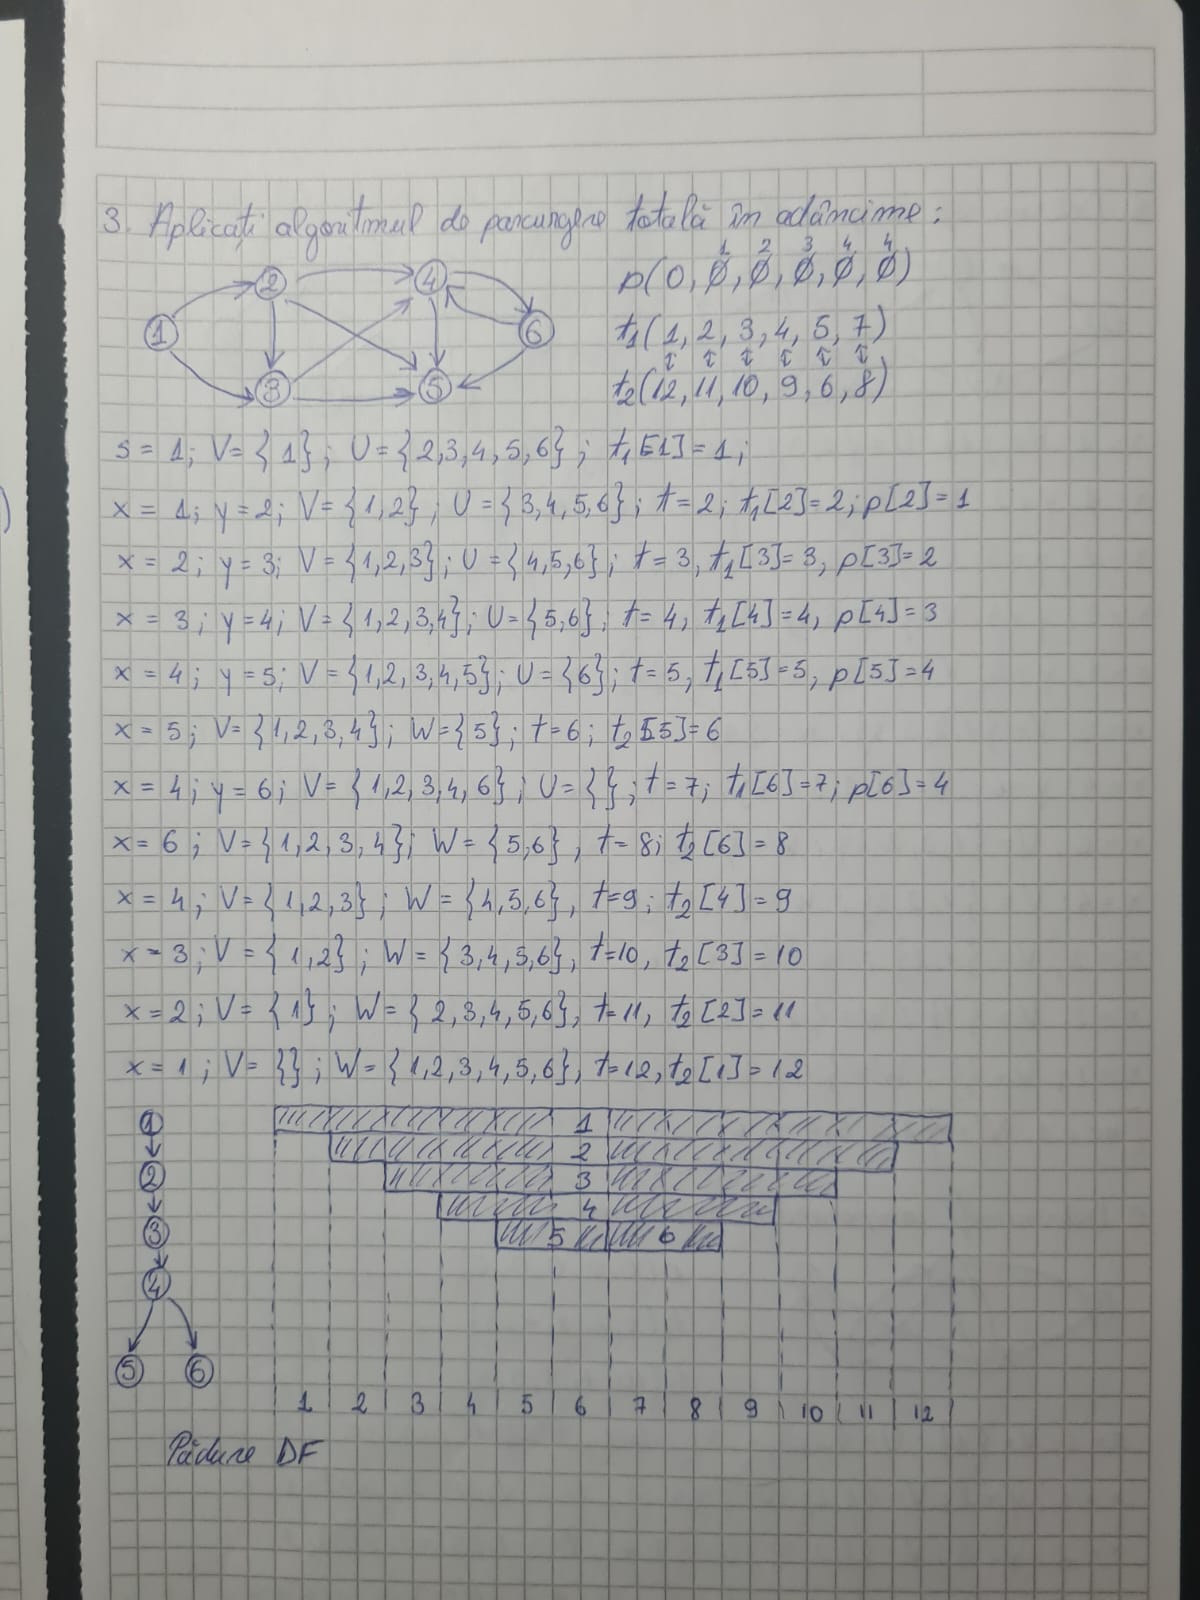 3. Aplicați algoritmul de parcurgere totală în adâncime:
1 2 3 4 4
p(0, Ø, Ø, Ø, Ø, Ø)
2 4
1 6
t1(1, 2, 3, 4, 5, 7)
↕ ↕ ↕ ↕ ↕ ↕
3 5
t2(12, 11, 10, 9, 6, 8)
s = 1; V = {1}; U = {2,3,4,5,6}; t1[1] = 1;
x = 1; y = 2; V = {1,2}; U = {3,4,5,6}; t = 2; t1[2] = 2; p[2] = 1
x = 2; y = 3; V = {1,2,3}; U = {4,5,6}; t = 3, t1[3] = 3, p[3] = 2
x = 3; y = 4; V = {1,2,3,4}; U = {5,6}; t = 4, t1[4] = 4, p[4] = 3
x = 4; y = 5; V = {1,2,3,4,5}; U = {6}; t = 5, t1[5] = 5, p[5] = 4
x = 5; V = {1,2,3,4}; W = {5}; t = 6; t2[5] = 6
x = 4; y = 6; V = {1,2,3,4,6}; U = {}; t = 7; t1[6] = 7; p[6] = 4
x = 6; V = {1,2,3,4}; W = {5,6}, t = 8; t2[6] = 8
x = 4; V = {1,2,3}; W = {4,5,6}, t = 9; t2[4] = 9
x = 3; V = {1,2}; W = {3,4,5,6}, t = 10, t2[3] = 10
x = 2; V = {1}; W = {2,3,4,5,6}, t = 11, t2[2] = 11
x = 1; V = {}; W = {1,2,3,4,5,6}, t = 12, t2[1] = 12
1 1
2 2
3 3
4 4
5 6
5 6
1 2 3 4 5 6 7 8 9 10 11 12
Pădure DF